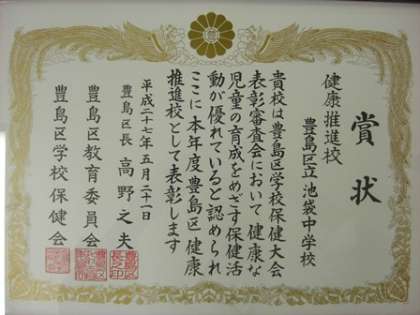 賞状
健康推進校
豊島区立池袋中学校
貴校は豊島区学校保健大会
表彰審査会において 健康な
児童の育成をめざす保健活
動が優れていると認められ
ここに本年度豊島区 健康
推進校として表彰します
平成二十七年五月二十一日
豊島区長 高野之夫
豊島区教育委員会
豊島区学校保健会